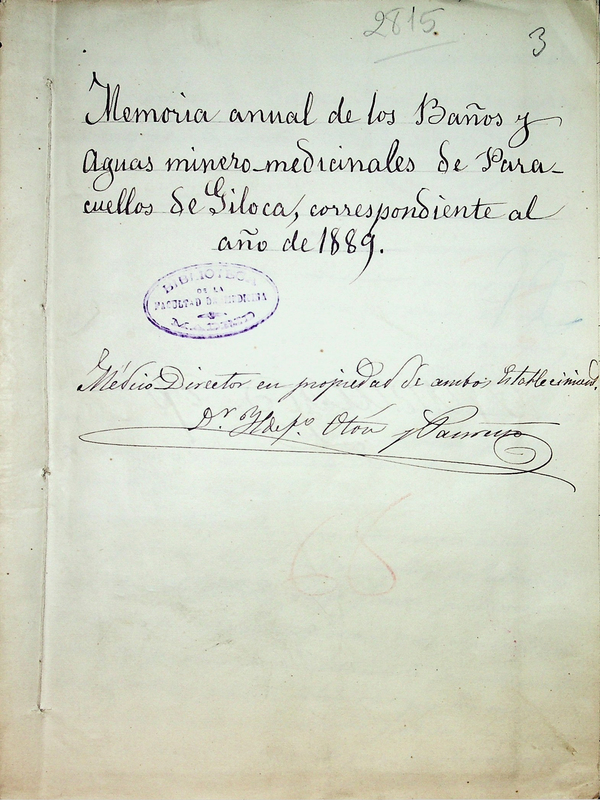 2815.
3
Memoria anual de los Baños y
Aguas minero-medicinales de Para-
cuellos de Giloca, correspondiente al
año de 1889.
BIBLIOTECA
DE LA
FACULTAD DE MEDICINA
Médico Director en propiedad de ambos Establecimientos,
Dr. Yldefo. Otón y
65